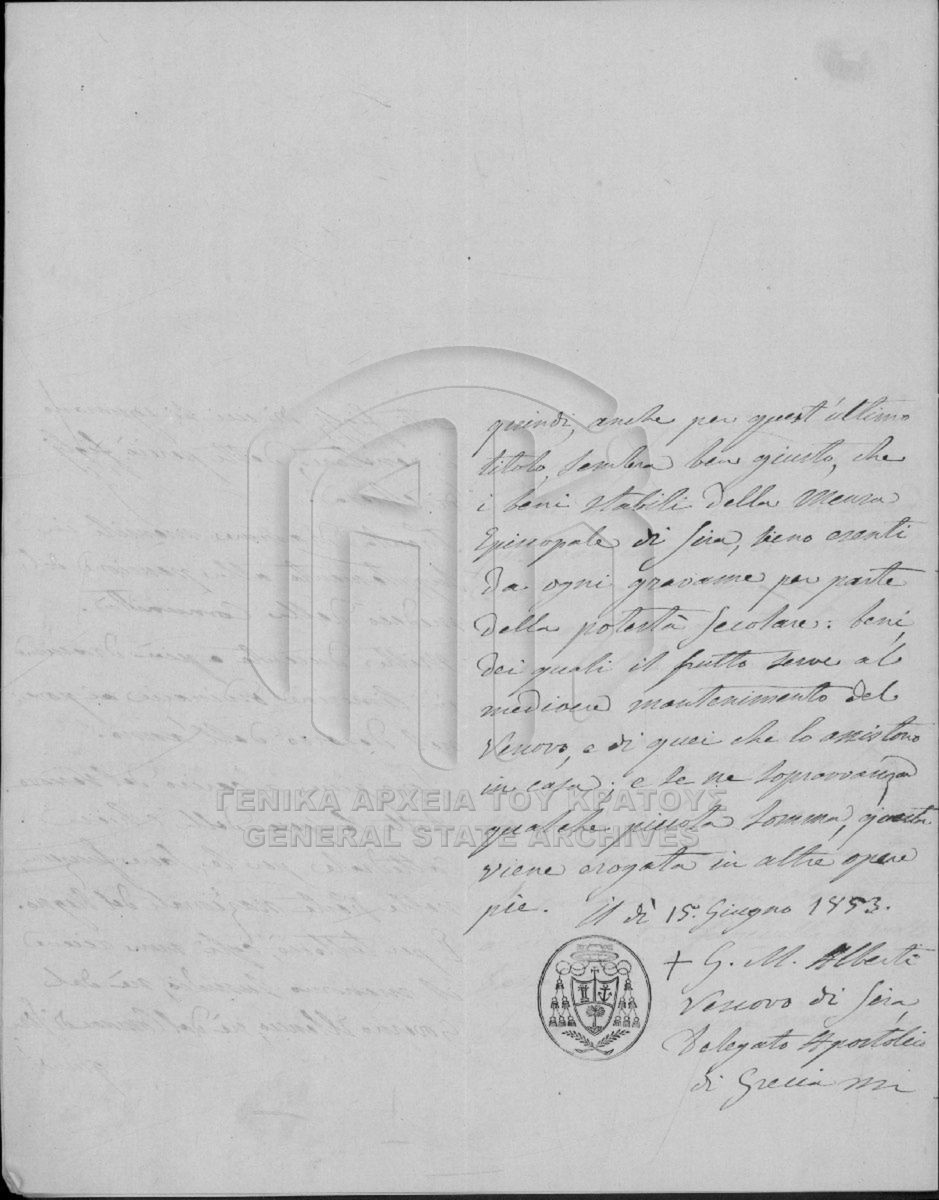 quindi, anche per quest'ultimo
titolo, sembra ben giusto, che
i beni stabili della Mensa
Episcopale di Sira, sieno esenti
da ogni gravame per parte
della potestà secolare: beni,
dei quali il frutto serve al
mediocre mantenimento del
Vescovo, e di quei che lo assistono
in casa; e se ne sopravvanza
qualche piccola somma, questa
viene erogata in altre opere
pie. Il dì 15. Giugno 1853.
+ G. M. Alberti
Vescovo di Sira
Delegato Apostolico
di Grecia
ΓΕΝΙΚΑ ΑΡΧΕΙΑ ΤΟΥ ΚΡΑΤΟΥΣ
GENERAL STATE ARCHIVES